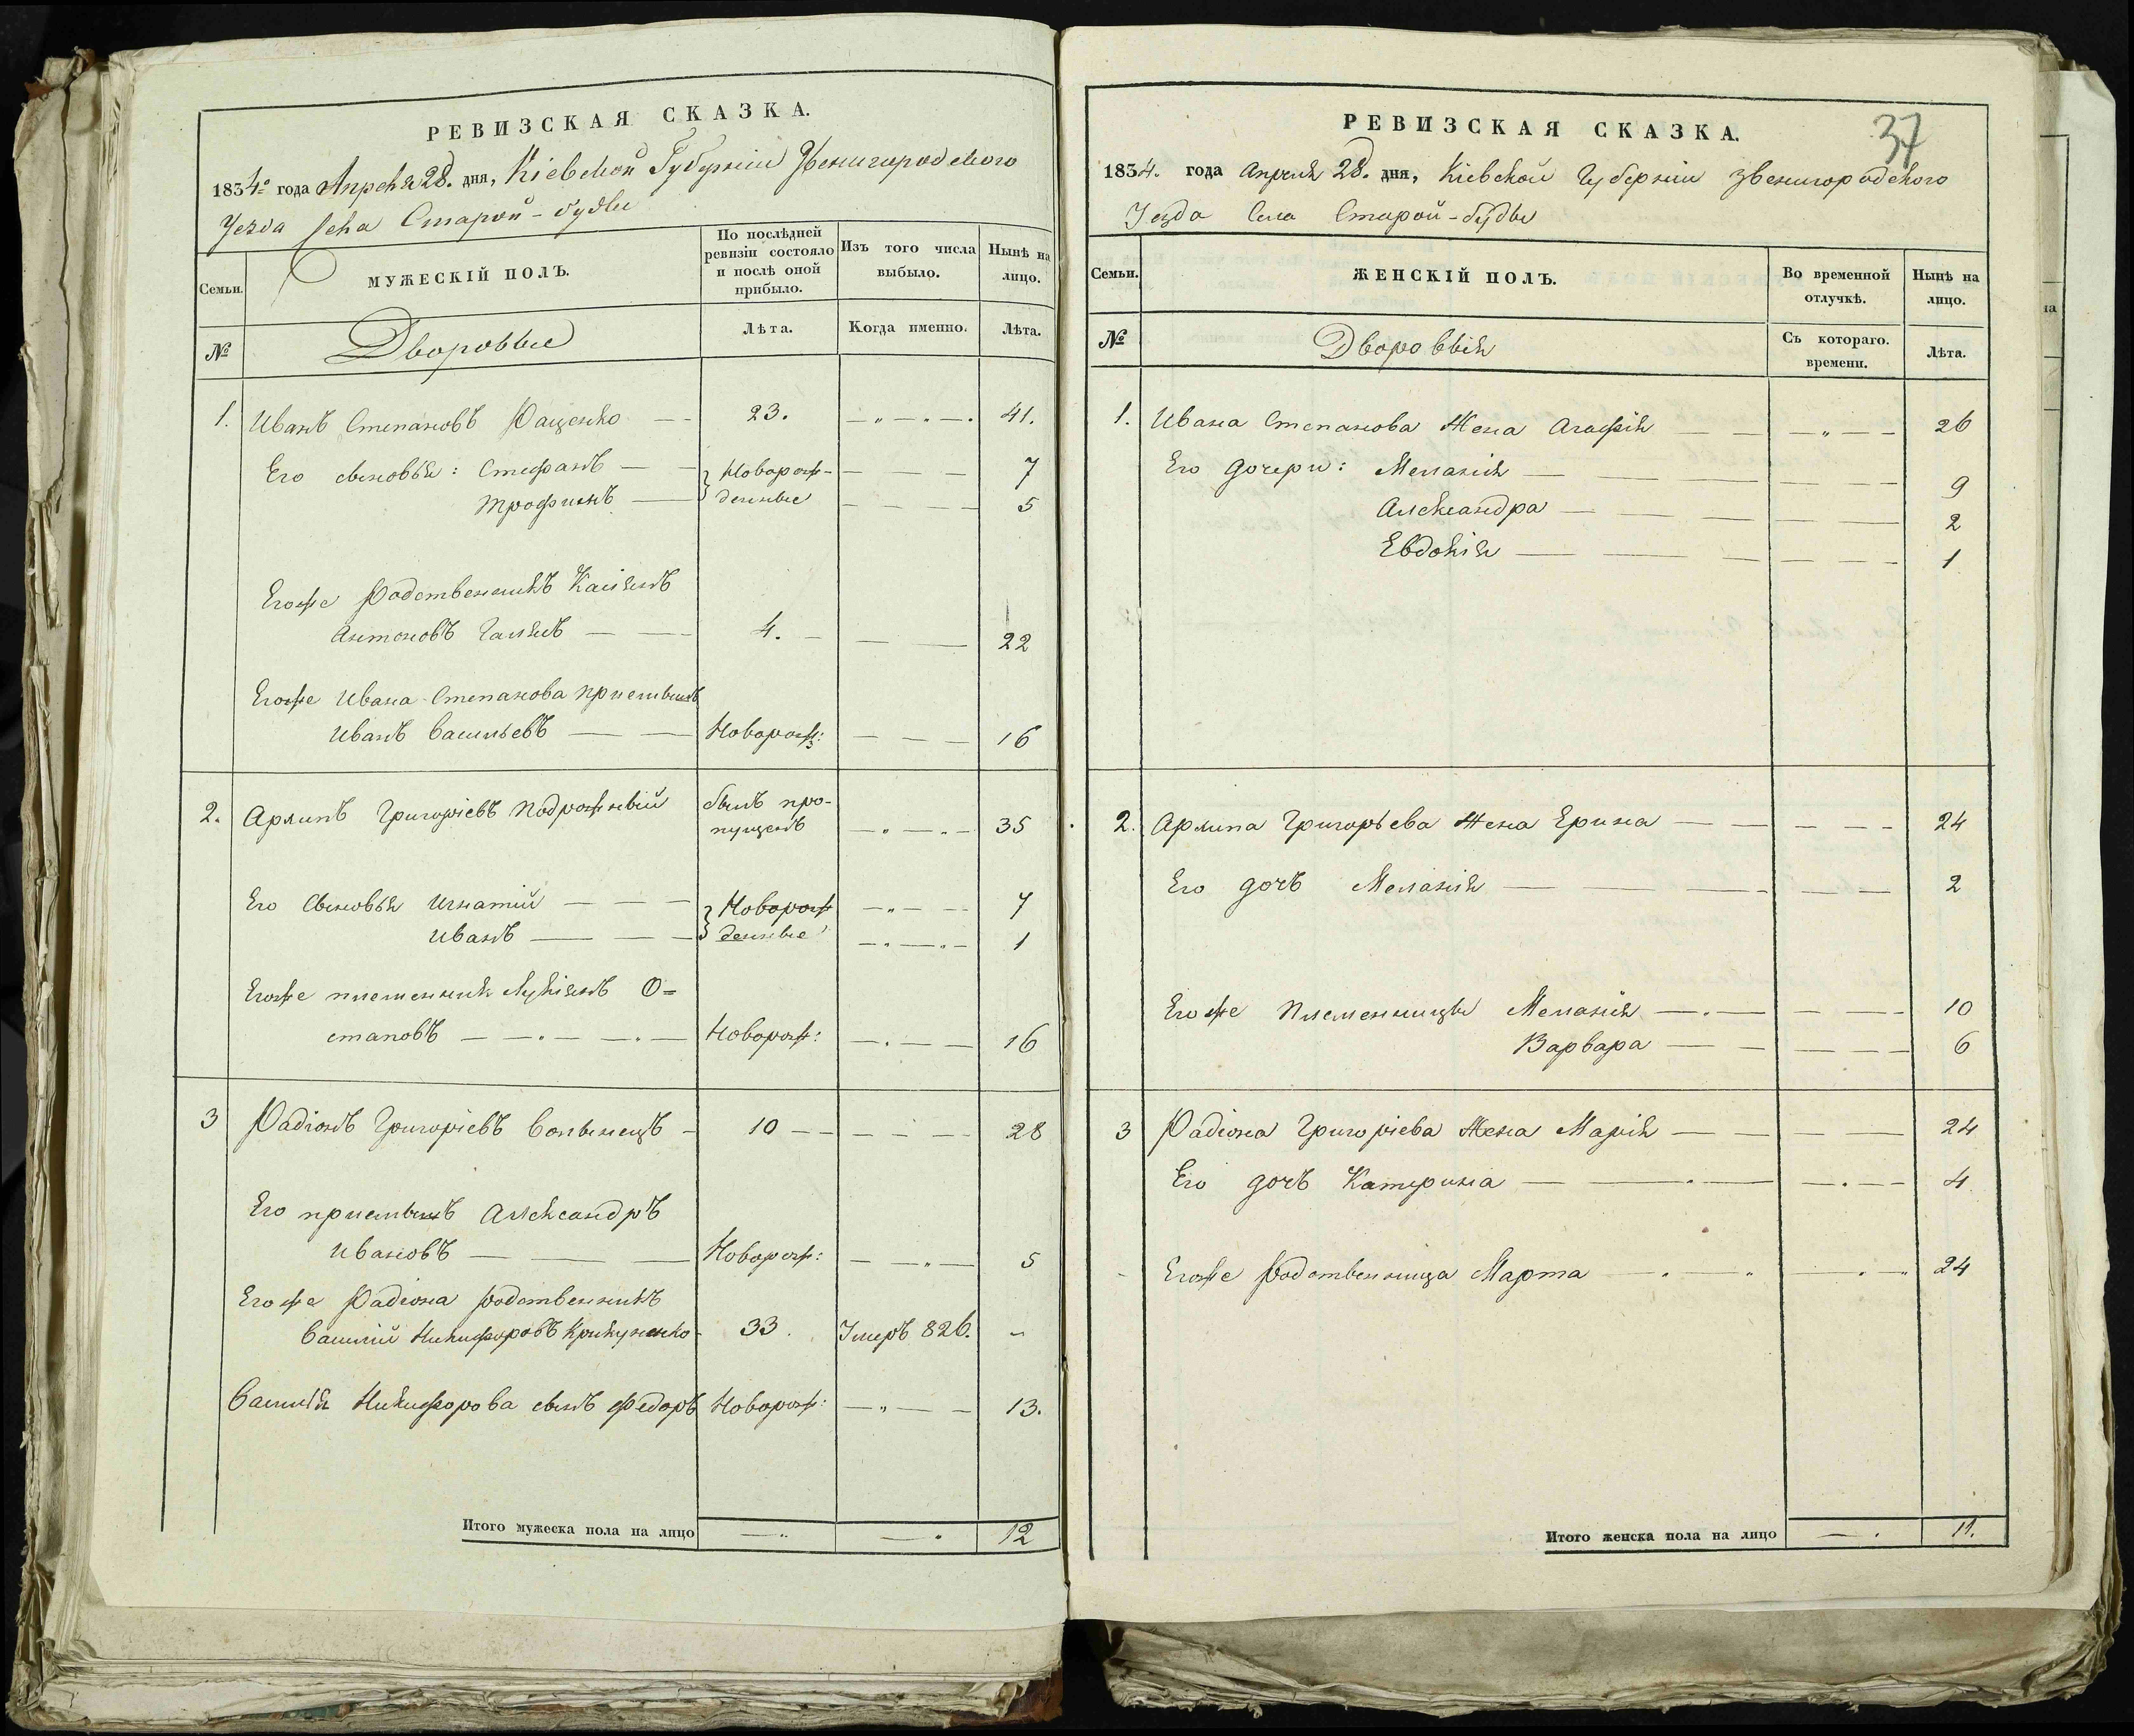 РЕВИЗСКАЯ СКАЗКА.
1834го года Апреля 28. дня, Кіевской Губерніи Звенигородского
Уезда Села Старой-буды
Семьи.
МУЖЕСКІЙ ПОЛЪ.
По послѣдней ревизіи состояло и послѣ оной прибыло.
Изъ того числа выбыло.
Нынѣ на лицо.
№
Дворовые
Лѣта.
Когда именно.
Лѣта.
1. Иванъ Степановъ Ращенко — 23. — „ — „ — 41.
Его сыновья: Стефанъ — Новорож- — — — 7
Трофимъ — денные — — — 5
Егоже Родственникъ Касіянъ
Антоновъ Галянъ — — 4. — — — 22
Егоже Ивана Степанова приемышъ
Иванъ Васильевъ — — Новорож: — — — 16
2. Архипъ Григоріевъ Подрожній былъ про-
пущенъ — „ — „ — 35
Его Сыновья Игнатий — — — Новорож — „ — — 7
Иванъ — — — денные — „ — „ — 1
Егоже племенник Лукіянъ О=
стаповъ — — . — — . — Новорож: — . — — 16
3 Радіонъ Григоріевъ Волынецъ — 10 — — — — — 28
Его приемышъ Александръ
Ивановъ — — — Новорож: — — „ — 5
Егоже Радиона родственникъ
Василий Никифоровъ Крикуненко — 33. Умеръ 826. —
Василія Никифорова сынъ Федоръ Новорож: — „ — — 13.
Итого мужеска пола на лицо — „ — . 12
РЕВИЗСКАЯ СКАЗКА.
37
1834. года Апреля 28. дня, Кіевской Губерніи Звенигородского
Уезда Села Старой-буды
Семьи.
ЖЕНСКІЙ ПОЛЪ.
Во временной отлучкѣ.
Нынѣ на лицо.
№
Дворовыя
Съ котораго. времени.
Лѣта.
1. Ивана Степанова Жена Агафія — — — „ — — 26
Его Дочери: Меланія — — — — — — 9
Александра — — — — — — 2
Евдокія — — — — — — 1
2. Архипа Григорьева Жена Ерина — — — — — 24
Его дочъ Меланія — — — — — — 2
Егоже Племенницы Меланія — . — — — — 10
Варвара — — — — — — 6
3 Радіона Григоріева Жена Марія — — — — — 24
Его дочъ Катерина — — . — — . — — 4
Егоже родственница Марта — . „ — . — „ 24
Итого женска пола на лицо — . 11.